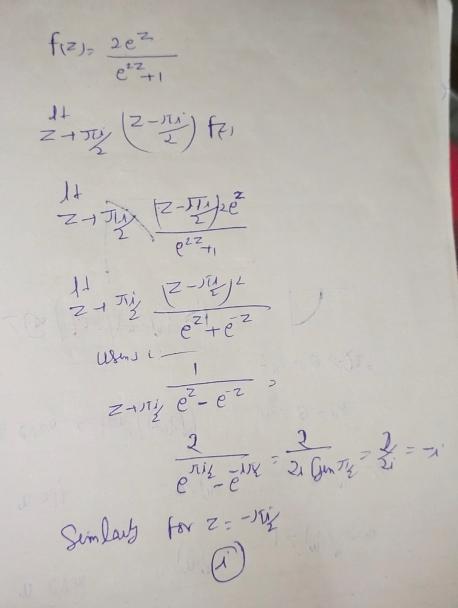 f(z) = 2e^z / e^{2z}+1
lt z→πi/2 (z-πi/2) f(z)
lt z→πi/2 (z-πi/2) 2e^z / e^{2z}+1
lt z→πi/2 (z-πi/2) 2 / e^z+e^{-z}
z→πi/2 1 / e^z - e^{-z} =
2 / e^{πi/2} - e^{-iπ/2} = 2 / 2i sin π/2 = 2/2i = -i
Similarly for z = -πi/2
i